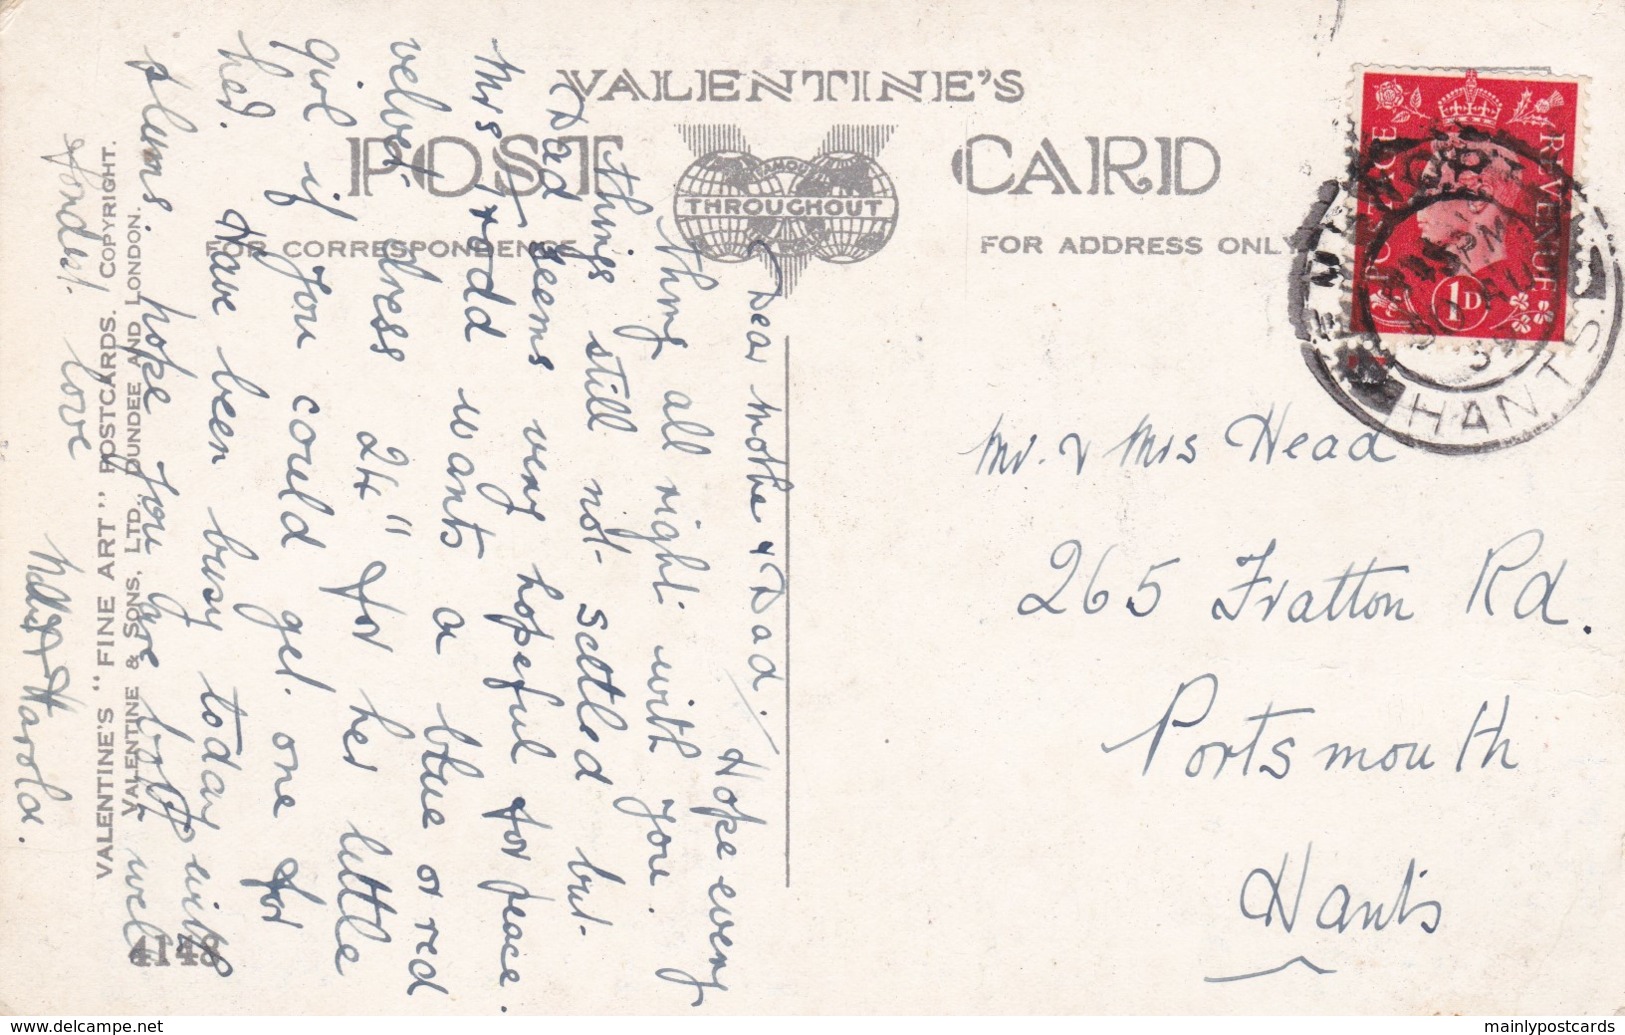 VALENTINE'S
POST CARD
FAMOUS
THROUGHOUT
FOR CORRESPONDENCE
FOR ADDRESS ONLY
POSTAGE REVENUE
1D
PM
30 AU
39
HANTS.
Mr. & Mrs Head
265 Fratton Rd.
Portsmouth
Hants
Dear Mother & Dad. Hope every
thing all right with you.
things still not settled but
Dad seems very hopeful for peace.
Mrs Todd wants a blue or red
velvet dress 24" for her little
girl if you could get one for
her. Have been busy today with
plums hope you are both well
Fondest love
Harold.
VALENTINE'S "FINE ART" POSTCARDS. COPYRIGHT.
VALENTINE & SONS, LTD., DUNDEE AND LONDON.
4148
www.delcampe.net
mainlypostcards